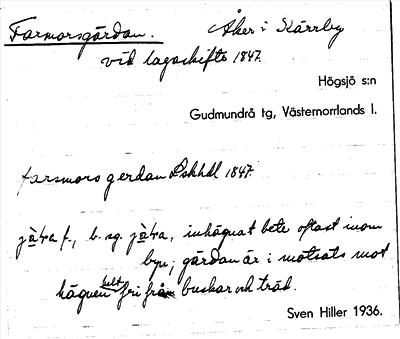 Farmorsgärdan. Åker i Kärrby
vid lagaskifte 1847.
Högsjö s:n
Gudmundrå tg, Västernorrlands l.
farsmors gerdan Lskhdl 1847.
f., b. sg. inhägnat bete oftast inom
byn; gärdan är i motsats mot
hägnen helt fri från buskar och träd.
Sven Hiller 1936.